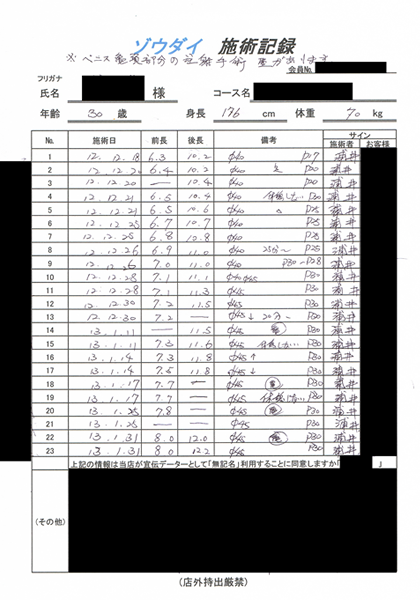 ゾウダイ 施術記録
※ペニス亀頭部分の手術
会員No.
フリガナ
氏名 様 コース名
年齢 30 歳 身長 176 cm 体重 70 kg
No. 施術日 前長 後長 備考 サイン
施術者 お客様
1 12.12.18 6.3 10.2 φ40 P27 浦井
2 12.12.20 6.4 10.2 φ40 P30 浦井
3 12.12.20 — 10.4 φ40 P30 浦井
4 12.12.21 6.5 10.4 φ40 P30 浦井
5 12.12.21 6.5 10.6 φ40 P25 浦井
6 12.12.25 6.7 10.7 φ40 P25 浦井
7 12.12.25 6.8 10.8 φ40 P25 浦井
8 12.12.26 6.9 11.0 φ40 25分〜 P25 浦井
9 12.12.26 7.0 11.0 φ40 P30〜P28 浦井
10 12.12.28 7.1 11.1 φ40 φ45 P30 浦井
11 12.12.28 7.1 11.3 φ45 P30 浦井
12 12.12.30 7.2 11.5 φ45 P30 浦井
13 12.12.30 7.2 — φ45↓20分〜 P30 浦井
14 13.1.11 — 11.5 φ45 P30 浦井
15 13.1.11 7.3 11.6 φ45 P30 浦井
16 13.1.14 7.3 11.8 φ45↑ P30 浦井
17 13.1.14 7.5 11.8 φ45↓ P30 浦井
18 13.1.17 7.7 — φ45 P30 浦井
19 13.1.17 7.7 — φ45 P30 浦井
20 13.1.25 7.8 — φ45 P30 浦井
21 13.1.25 — — φ45 P30 浦井
22 13.1.31 8.0 12.0 φ45 P30 浦井
23 13.1.31 8.0 12.2 φ45 P30 浦井
上記の情報は当店が宣伝データーとして「無記名」利用することに同意しますか「 」
(その他)
(店外持出厳禁)